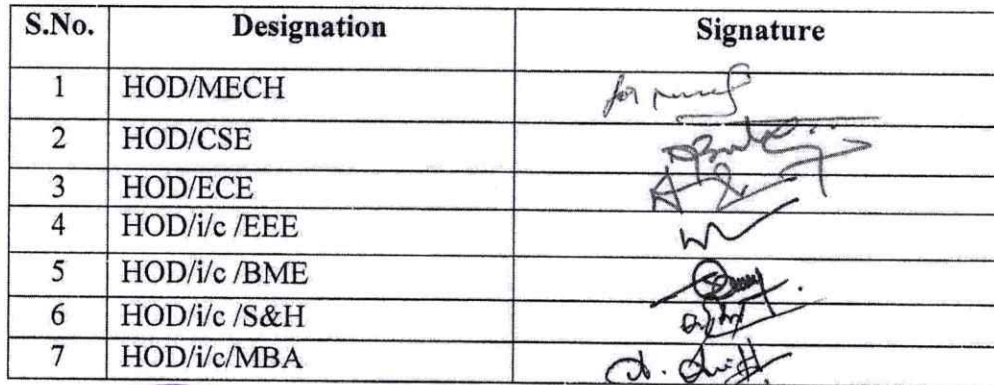 S.No. Designation Signature
1 HOD/MECH for
2 HOD/CSE
3 HOD/ECE
4 HOD/i/c /EEE
5 HOD/i/c /BME
6 HOD/i/c /S&H
7 HOD/i/c/MBA